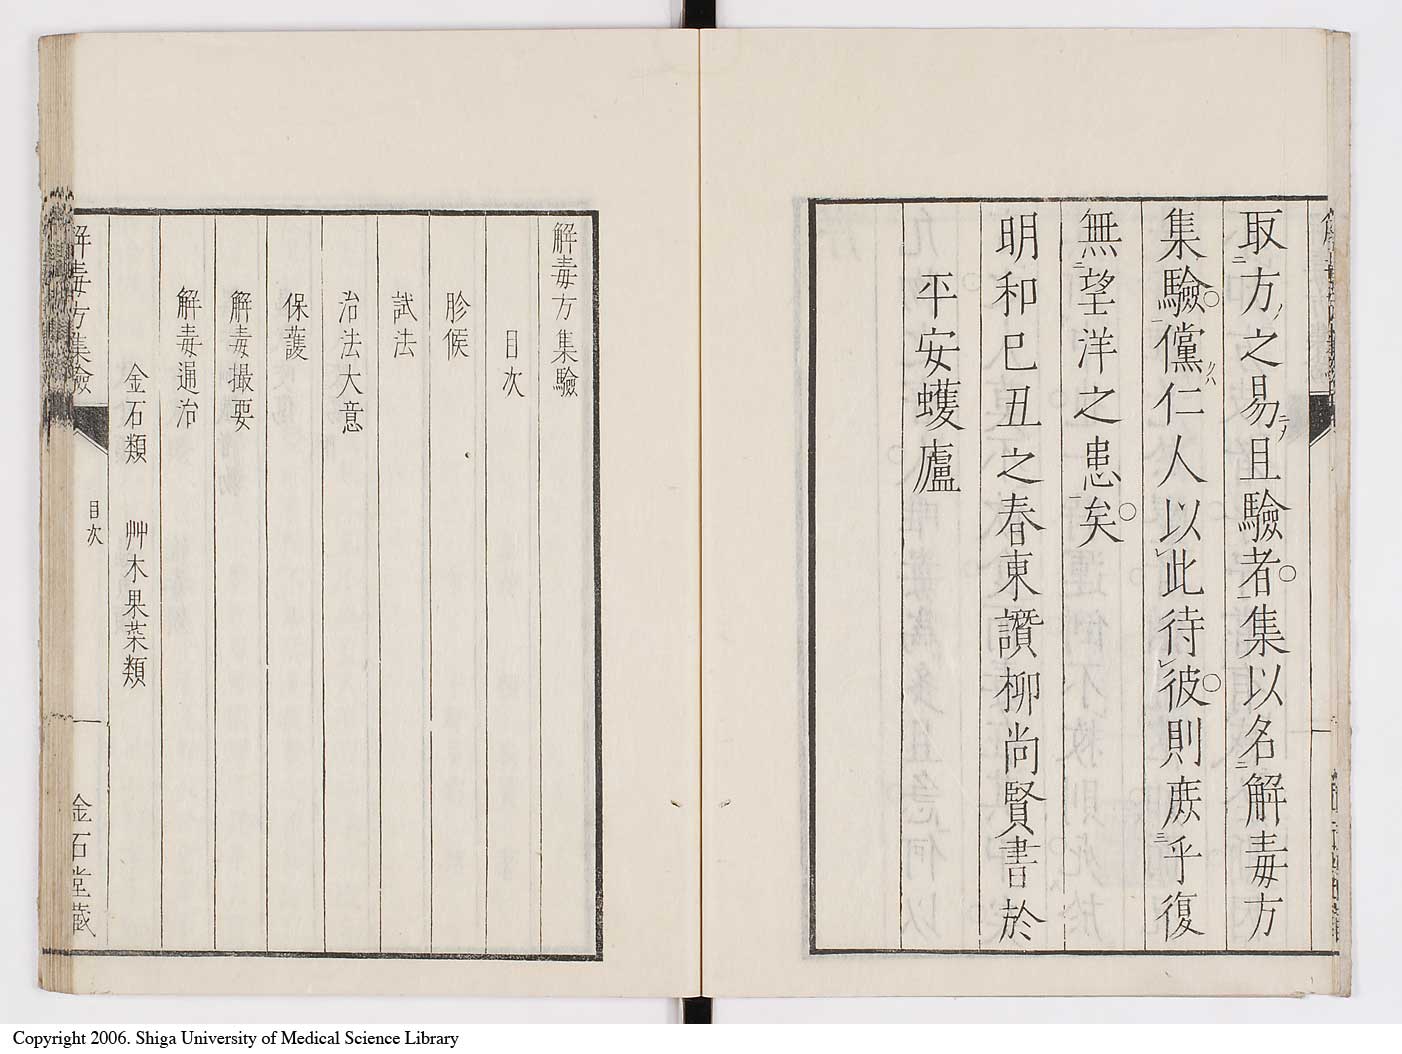 取方之易且驗者。集以名解毒方
集驗。儻仁人以此待彼。則庶乎復
無望洋之患矣。
明和己丑之春東讚柳尚賢書於
平安蠖廬
解毒方集驗
目次
胗候
試法
治法大意
保護
解毒撮要
解毒通治
金石類 艸木果菜類
解毒方集驗 目次 一 金石堂藏
Copyright 2006. Shiga University of Medical Science Library